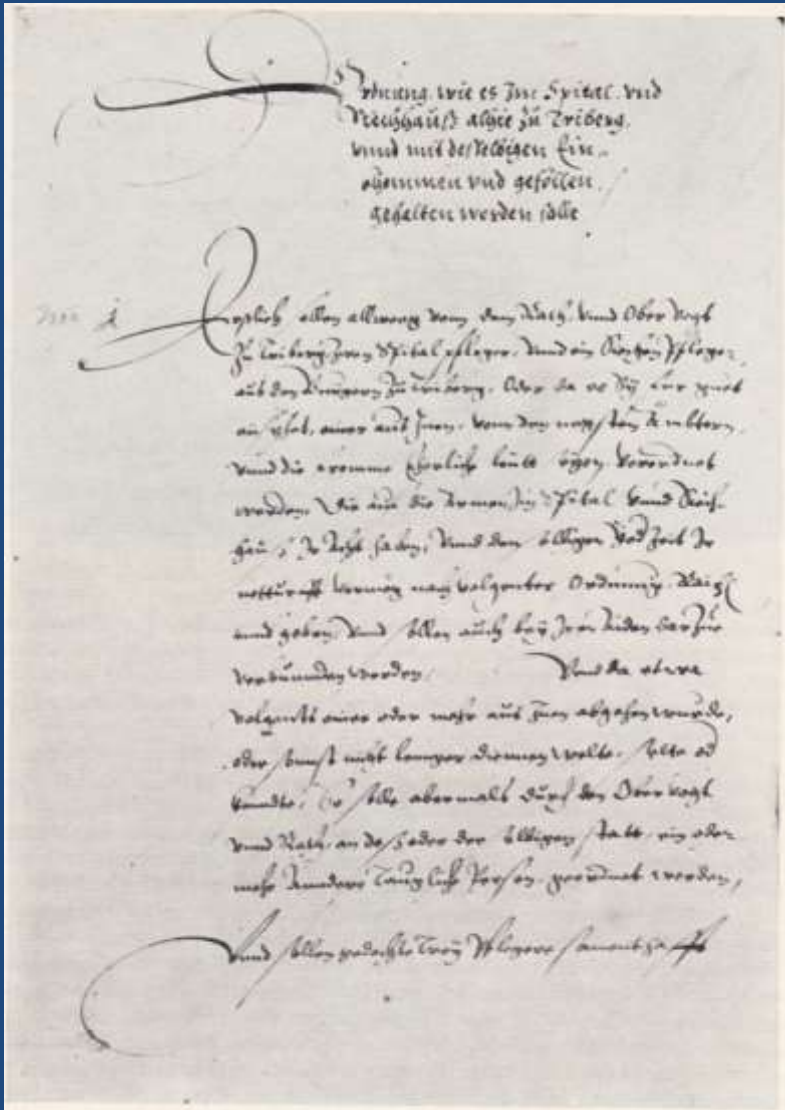 Ordnung, wie es Im Spital vnd
Siechhauß alhie zu Triberg,
vnnd mit desselbigen Ein-
khommen vnd geföllen,
gehalten werden solle
1
Erstlich sollen allweeg vom dem Rath, vnnd Ober Vogt
Zu Triberg, Spital pfleger, vnnd ein Pfleger
aus den Burgern zu Triberg, Oder da es
einer aus Inen, von den
vnnd die fromme Ehrliche leütt verordnet
werden, Die auf die Armen, Im Spital vnnd Siech-
hauß, Acht haben, vnnd den selbigen Jed Zeit Ir
notturfft vermög nach volgenter Ordnung,
vnnd geben, vnnd sollen auch bey Iren Aiden darzue
verbunnden werden, Vnnd da etwa
volgents einer oder mehr aus Inen abgehen wurde,
oder sonnst nicht lennger diennen wolte, solte od
kundte, So solle abermals durch den Ober Vogt
vnnd Rath, an des oder der selbigen statt, ein oder
mehr Anndere Taugliche Person, geordnet werden,
Vnnd sollen gedachte Drey Pflegere